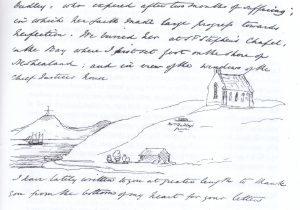 Dudley, who expired after two months of suffering;
in which her faith made large progress towards
perfection. We buried her at St Stephen's Chapel,
in the Bay where I first set foot on the shore of
New Zealand; and in view of the windows of the
Chief Justice's house
I have lately written to you at greater length to thank
you from the bottom of my heart for your letters